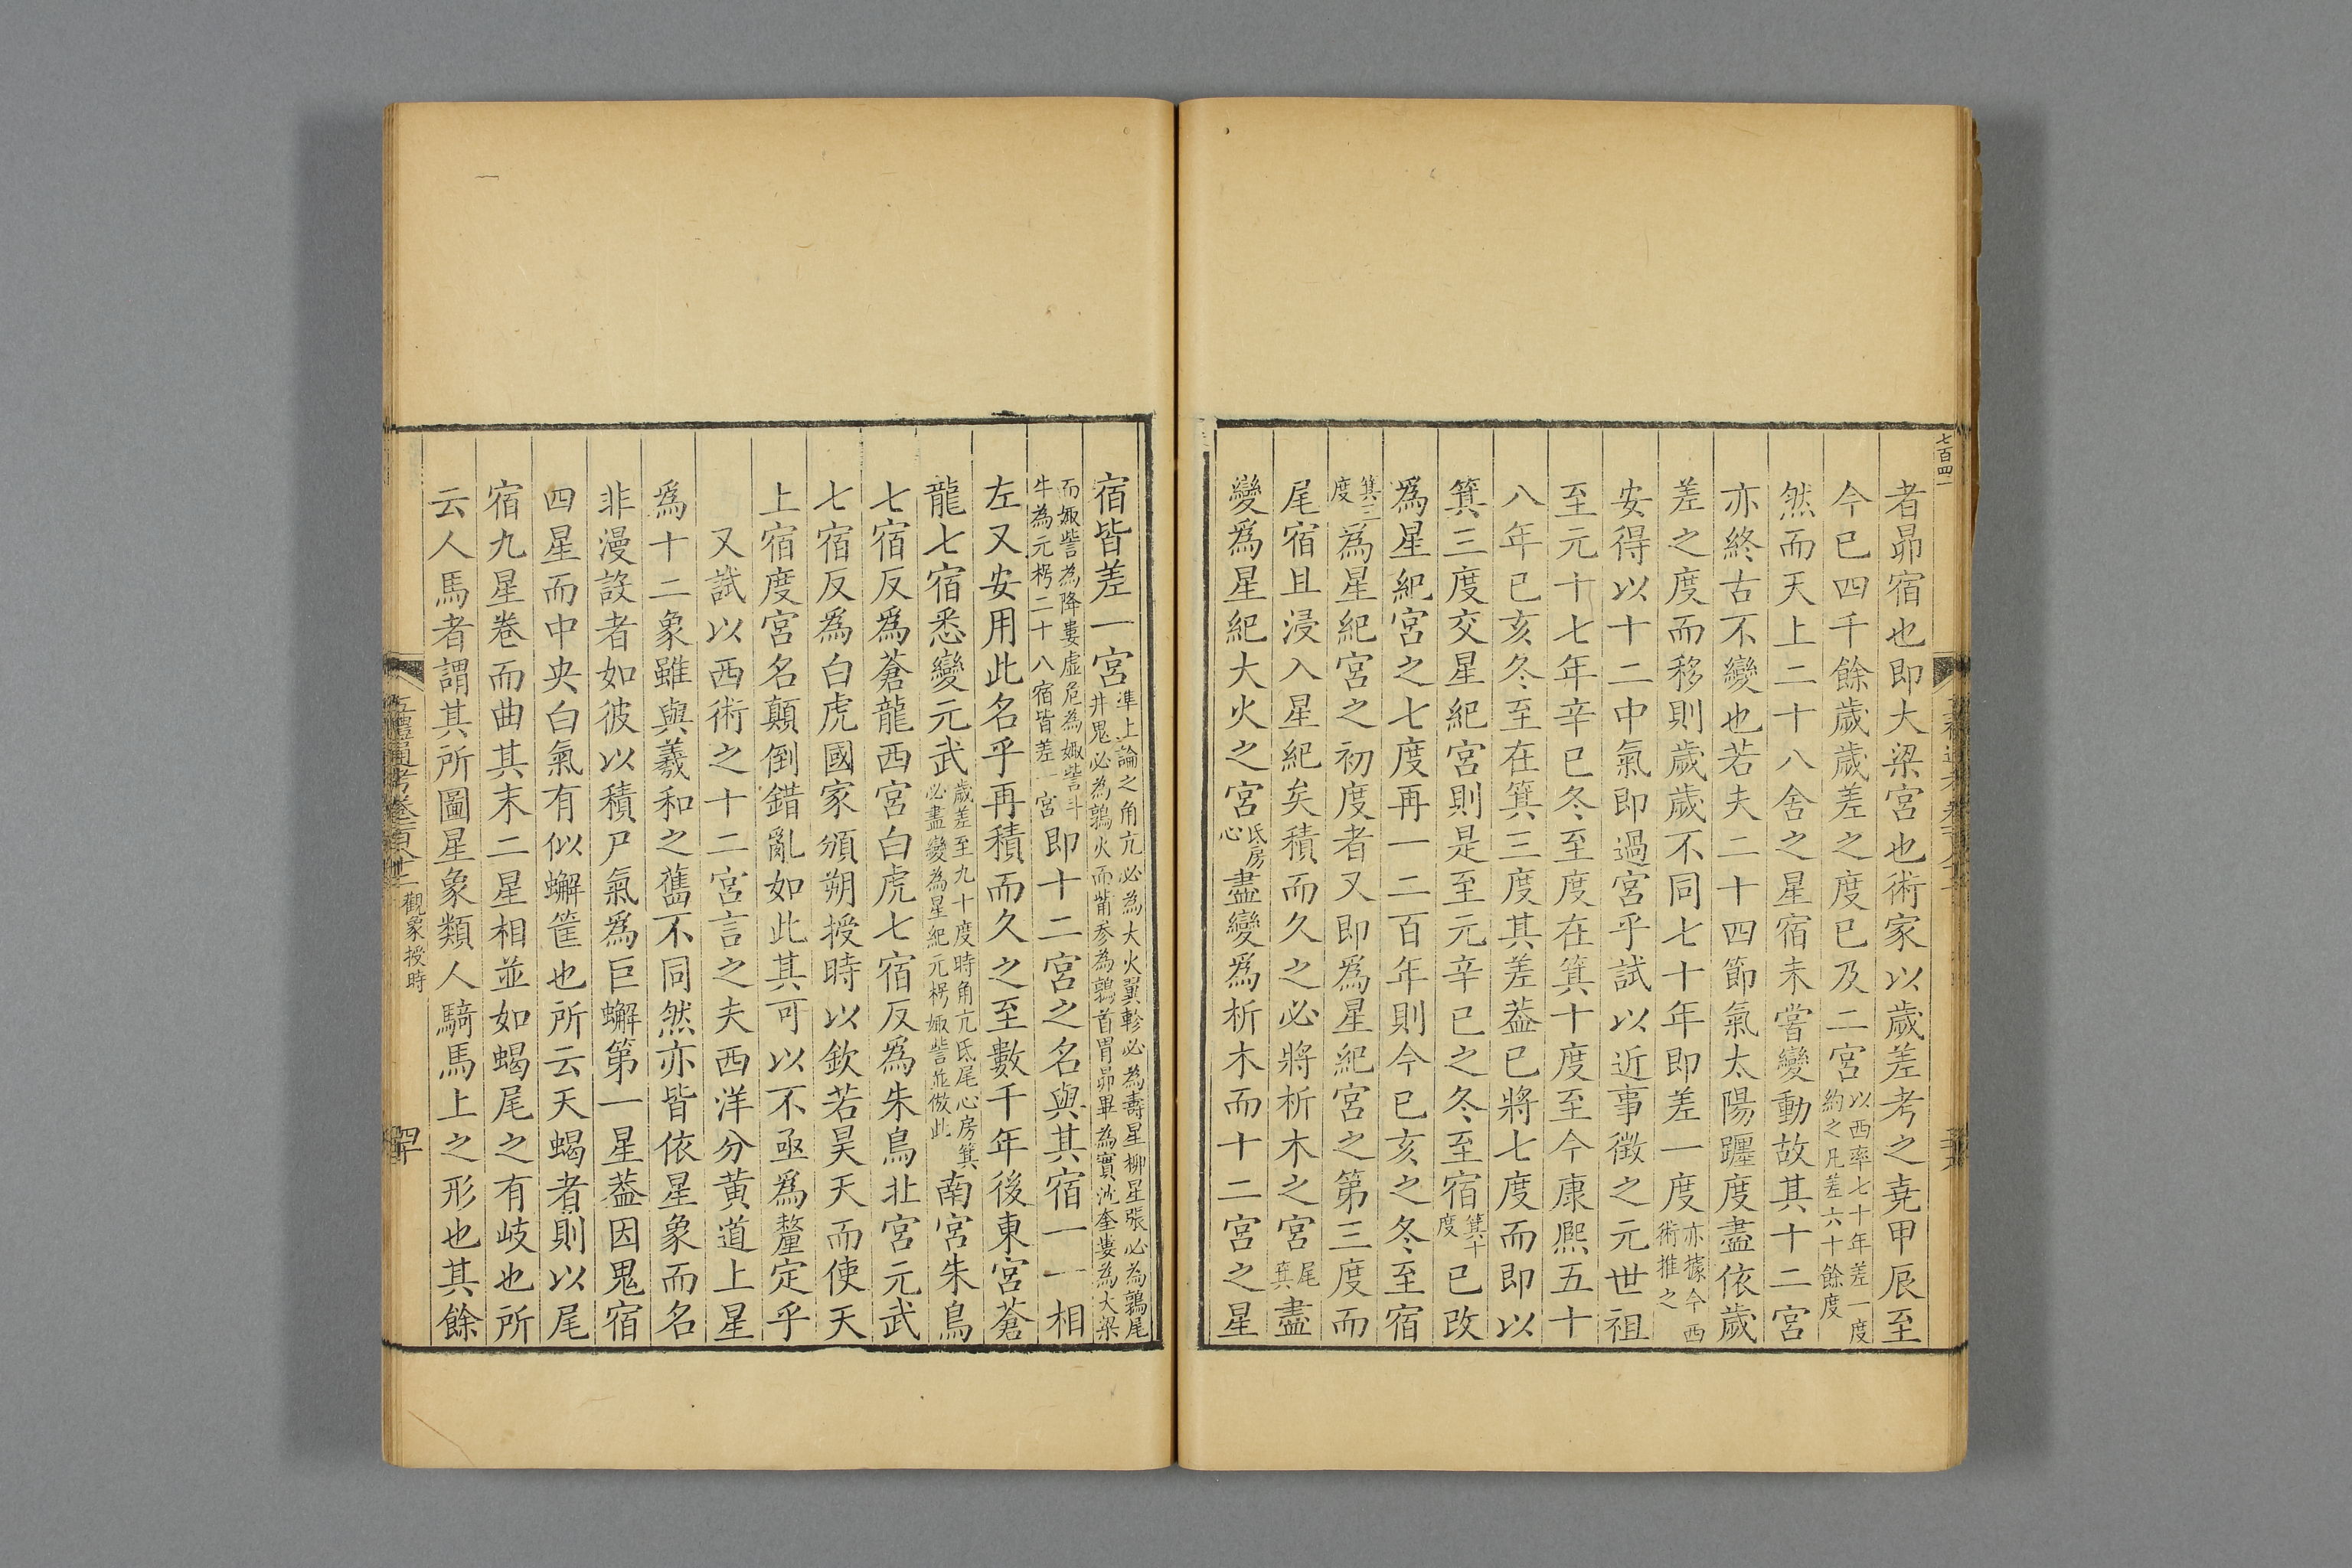 七百四二
者昴宿也即大梁宮也術家以歲差考之堯甲辰至
今已四千餘歲歲差之度已及二宮以西率七十年差一度約之凡差六十餘度
然而天上二十八舍之星宿未嘗變動故其十二宮
亦終古不變也若夫二十四節氣太陽躔度盡依歲
差之度而移則歲歲不同七十年即差一度亦據今西術推之
安得以十二中氣即過宮乎試以近事徵之元世祖
至元十七年辛巳冬至度在箕十度至今康熙五十
八年已亥冬至在箕三度其差葢已將七度而即以
箕三度交星紀宮則是至元辛巳之冬至宿箕十度已改
爲星紀宮之七度再一二百年則今已亥之冬至宿
箕三度為星紀宮之初度者又即爲星紀宮之第三度而
尾宿且浸入星紀矣積而久之必將析木之宮尾箕盡
變爲星紀大火之宮氐房心盡變爲析木而十二宮之星
宿皆差一宮準上論之角亢必為大火翼軫必為壽星柳星張必為鶉尾井鬼必為鶉火而觜参為鶉首胃昴畢為實沈奎婁為大梁
而娵訾為降婁虛危為娵訾斗牛為元枵二十八宿皆差一宮即十二宮之名與其宿一一相
左又安用此名乎再積而久之至數千年後東宮蒼
龍七宿悉變元武歲差至九十度時角亢氐尾心房箕必盡變為星紀元枵娵訾並倣此南宮朱鳥
七宿反爲蒼龍西宮白虎七宿反爲朱鳥北宮元武
七宿反爲白虎國家頒朔授時以欽若昊天而使天
上宿度宮名顛倒錯亂如此其可以不亟爲釐定乎
又試以西術之十二宮言之夫西洋分黄道上星
爲十二象雖與羲和之舊不同然亦皆依星象而名
非漫設者如彼以積尸氣爲巨蠏第一星葢因鬼宿
四星而中央白氣有似蠏筐也所云天蝎者則以尾
宿九星卷而曲其末二星相並如蝎尾之有岐也所
云人馬者謂其所圖星象類人騎馬上之形也其餘
五禮通考卷一百八十二 觀象授時